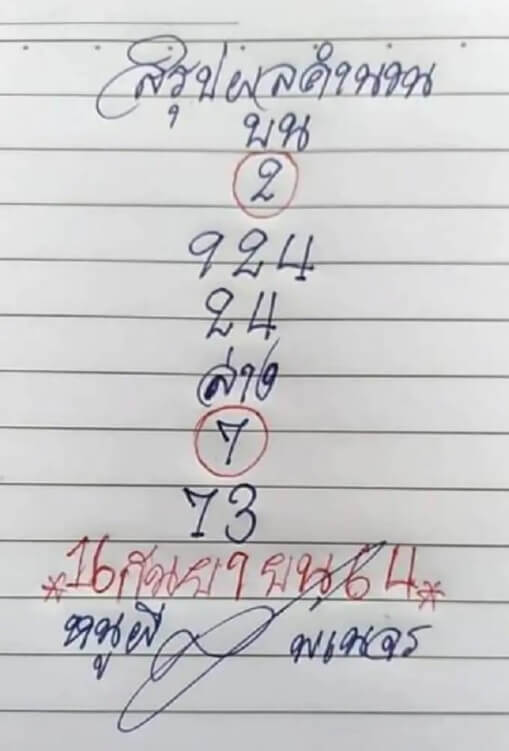 สรุปผลคำนวน
บน
2
924
24
ล่าง
7
73
*16กันยายน64*
หนูผี พเนจร